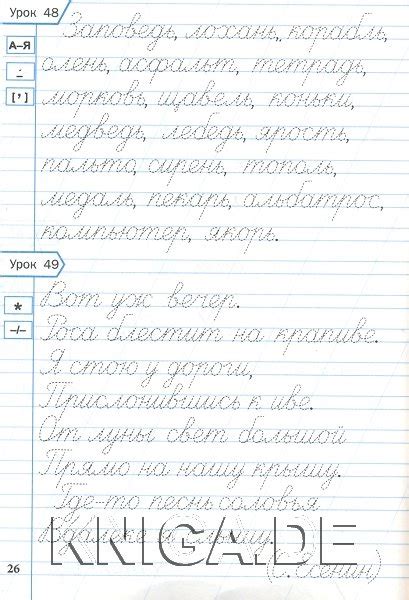 Урок 48
Заповедь, лохань, корабль,
А–Я
олень, асфальт, тетрадь,
[ʼ]
морковь, щавель, коньки,
медведь, лебедь, ярость,
пальто, сирень, тополь,
медаль, пекарь, альбатрос,
компьютер, якорь.
Урок 49
Вот уж вечер.
*
Роса блестит на крапиве.
–/–
Я стою у дороги,
Прислонившись к иве.
От луны свет большой
Прямо на нашу крышу.
Где-то песнь соловья
Вдалеке я слышу.
KNIGA.DE
(С. Есенин)
26